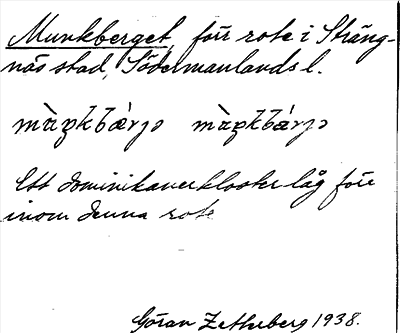 Munkberget, förr rote i Sträng-
näs stad, Södermanlands l.
Ett dominikanerkloster låg förr
inom denna rote
Göran Zetterberg 1938.